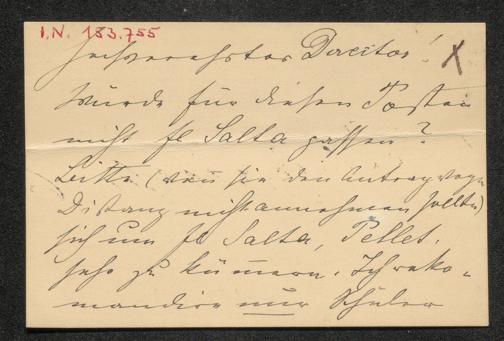 I.N. 183.755
Hochverehrter Director!
Würde für diesen Posten
nicht fl Salta passen?
Bitte (wenn Sie den Antrag wegen
Distanz nicht annehmen sollten)
sich um fl Salta, Pellet.
sehr zu kümmern. Ich reko-
mandire nur Schüler